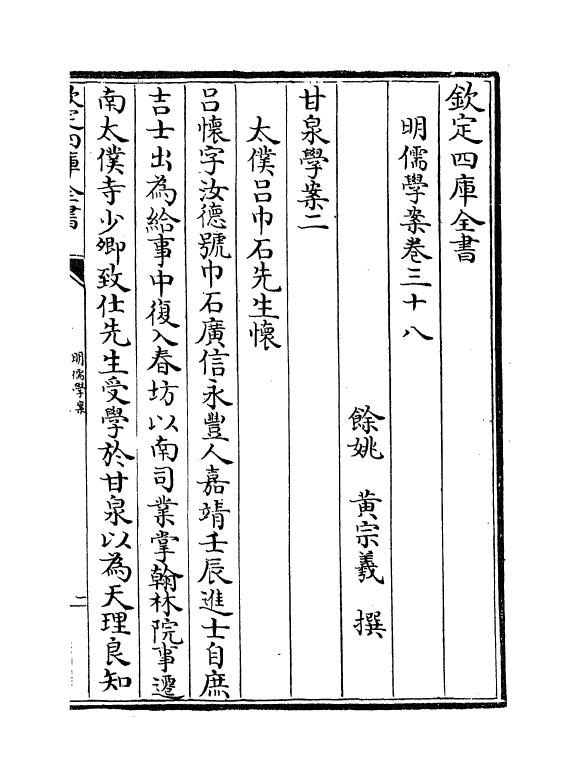 欽定四庫全書
明儒學案卷三十八
餘姚 黄宗羲 撰
甘泉學案二
太僕吕巾石先生懷
吕懷字汝德號巾石廣信永豐人嘉靖壬辰進士自庶
吉士出為給事中復入春坊以南司業掌翰林院事遷
南太僕寺少卿致仕先生受學於甘泉以為天理良知
欽定四庫全書
明儒學案